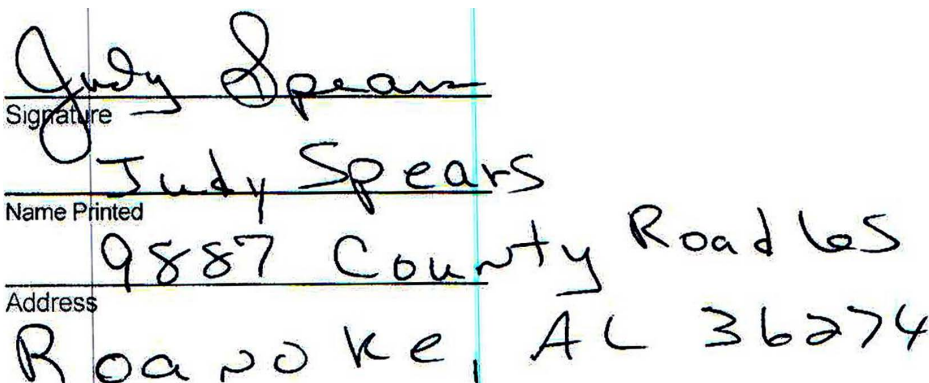 Judy Spears
Signature
Judy Spears
Name Printed
9887 County Road 65
Address
Roanoke, AL 36274